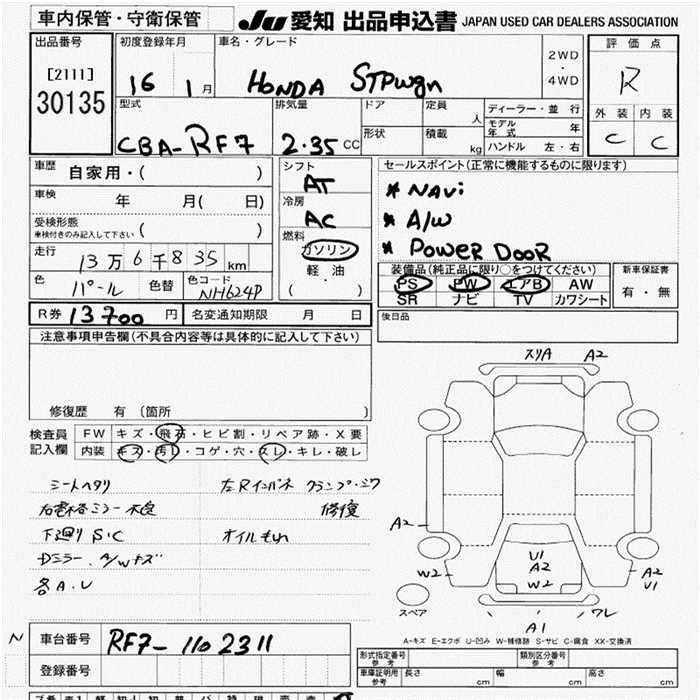 車内保管・守衛保管
JU 愛知 出品申込書 JAPAN USED CAR DEALERS ASSOCIATION
出品番号
[2111]
30135
初度登録年月
16 1月
車名・グレード
HONDA STPwgn
2WD
・
4WD
評価点
R
外装 内装
C C
型式
CBA-RF7
排気量
2.35 CC
ドア
形状
定員
人
積載
kg
ディーラー・並行
モデル年式 年
ハンドル 左・右
車歴 自家用・( )
車検 年 月( 日)
受検形態
車検付きのみ記入して下さい ( )
走行 13万6千835 km
色 パール 色替 色コード NH624P
シフト
AT
冷房
AC
燃料
ガソリン
軽油
( ・ )
セールスポイント(正常に機能するものに限ります)
* NAVi
* A/W
* POWER DOOR
装備品(純正品に限り○をつけてください)
PS PW エアB AW
SR ナビ TV カワシート
新車保証書
有・無
R券 13700 円 名変通知期限 月 日
後日品
注意事項申告欄(不具合内容等は具体的に記入して下さい)
修復歴 有 〔箇所 〕
検査員
記入欄
FW キズ・飛石・ヒビ割・リペア跡・X要
内装 キズ・汚レ・コゲ・穴・スレ・キレ・破レ
シートヘタリ 左Rインパネ クランプ・ミワ
右電格ミラー不良 修復
下廻り S・C オイルもれ
Dミラー、A/Wキズ
各A.U
スリA A2
A2
U1
A2
W2
W2
A2
U1
スペア
A1
ワレ
A-キズ E-エクボ U-凹み W-補修跡 S-サビ C-腐食 XX-交換済
N
車台番号 RF7-1102311
登録番号
形式指定番号
参考
類別区分番号
参考
車庫証明用
参考
長さ cm 幅 cm 高さ cm